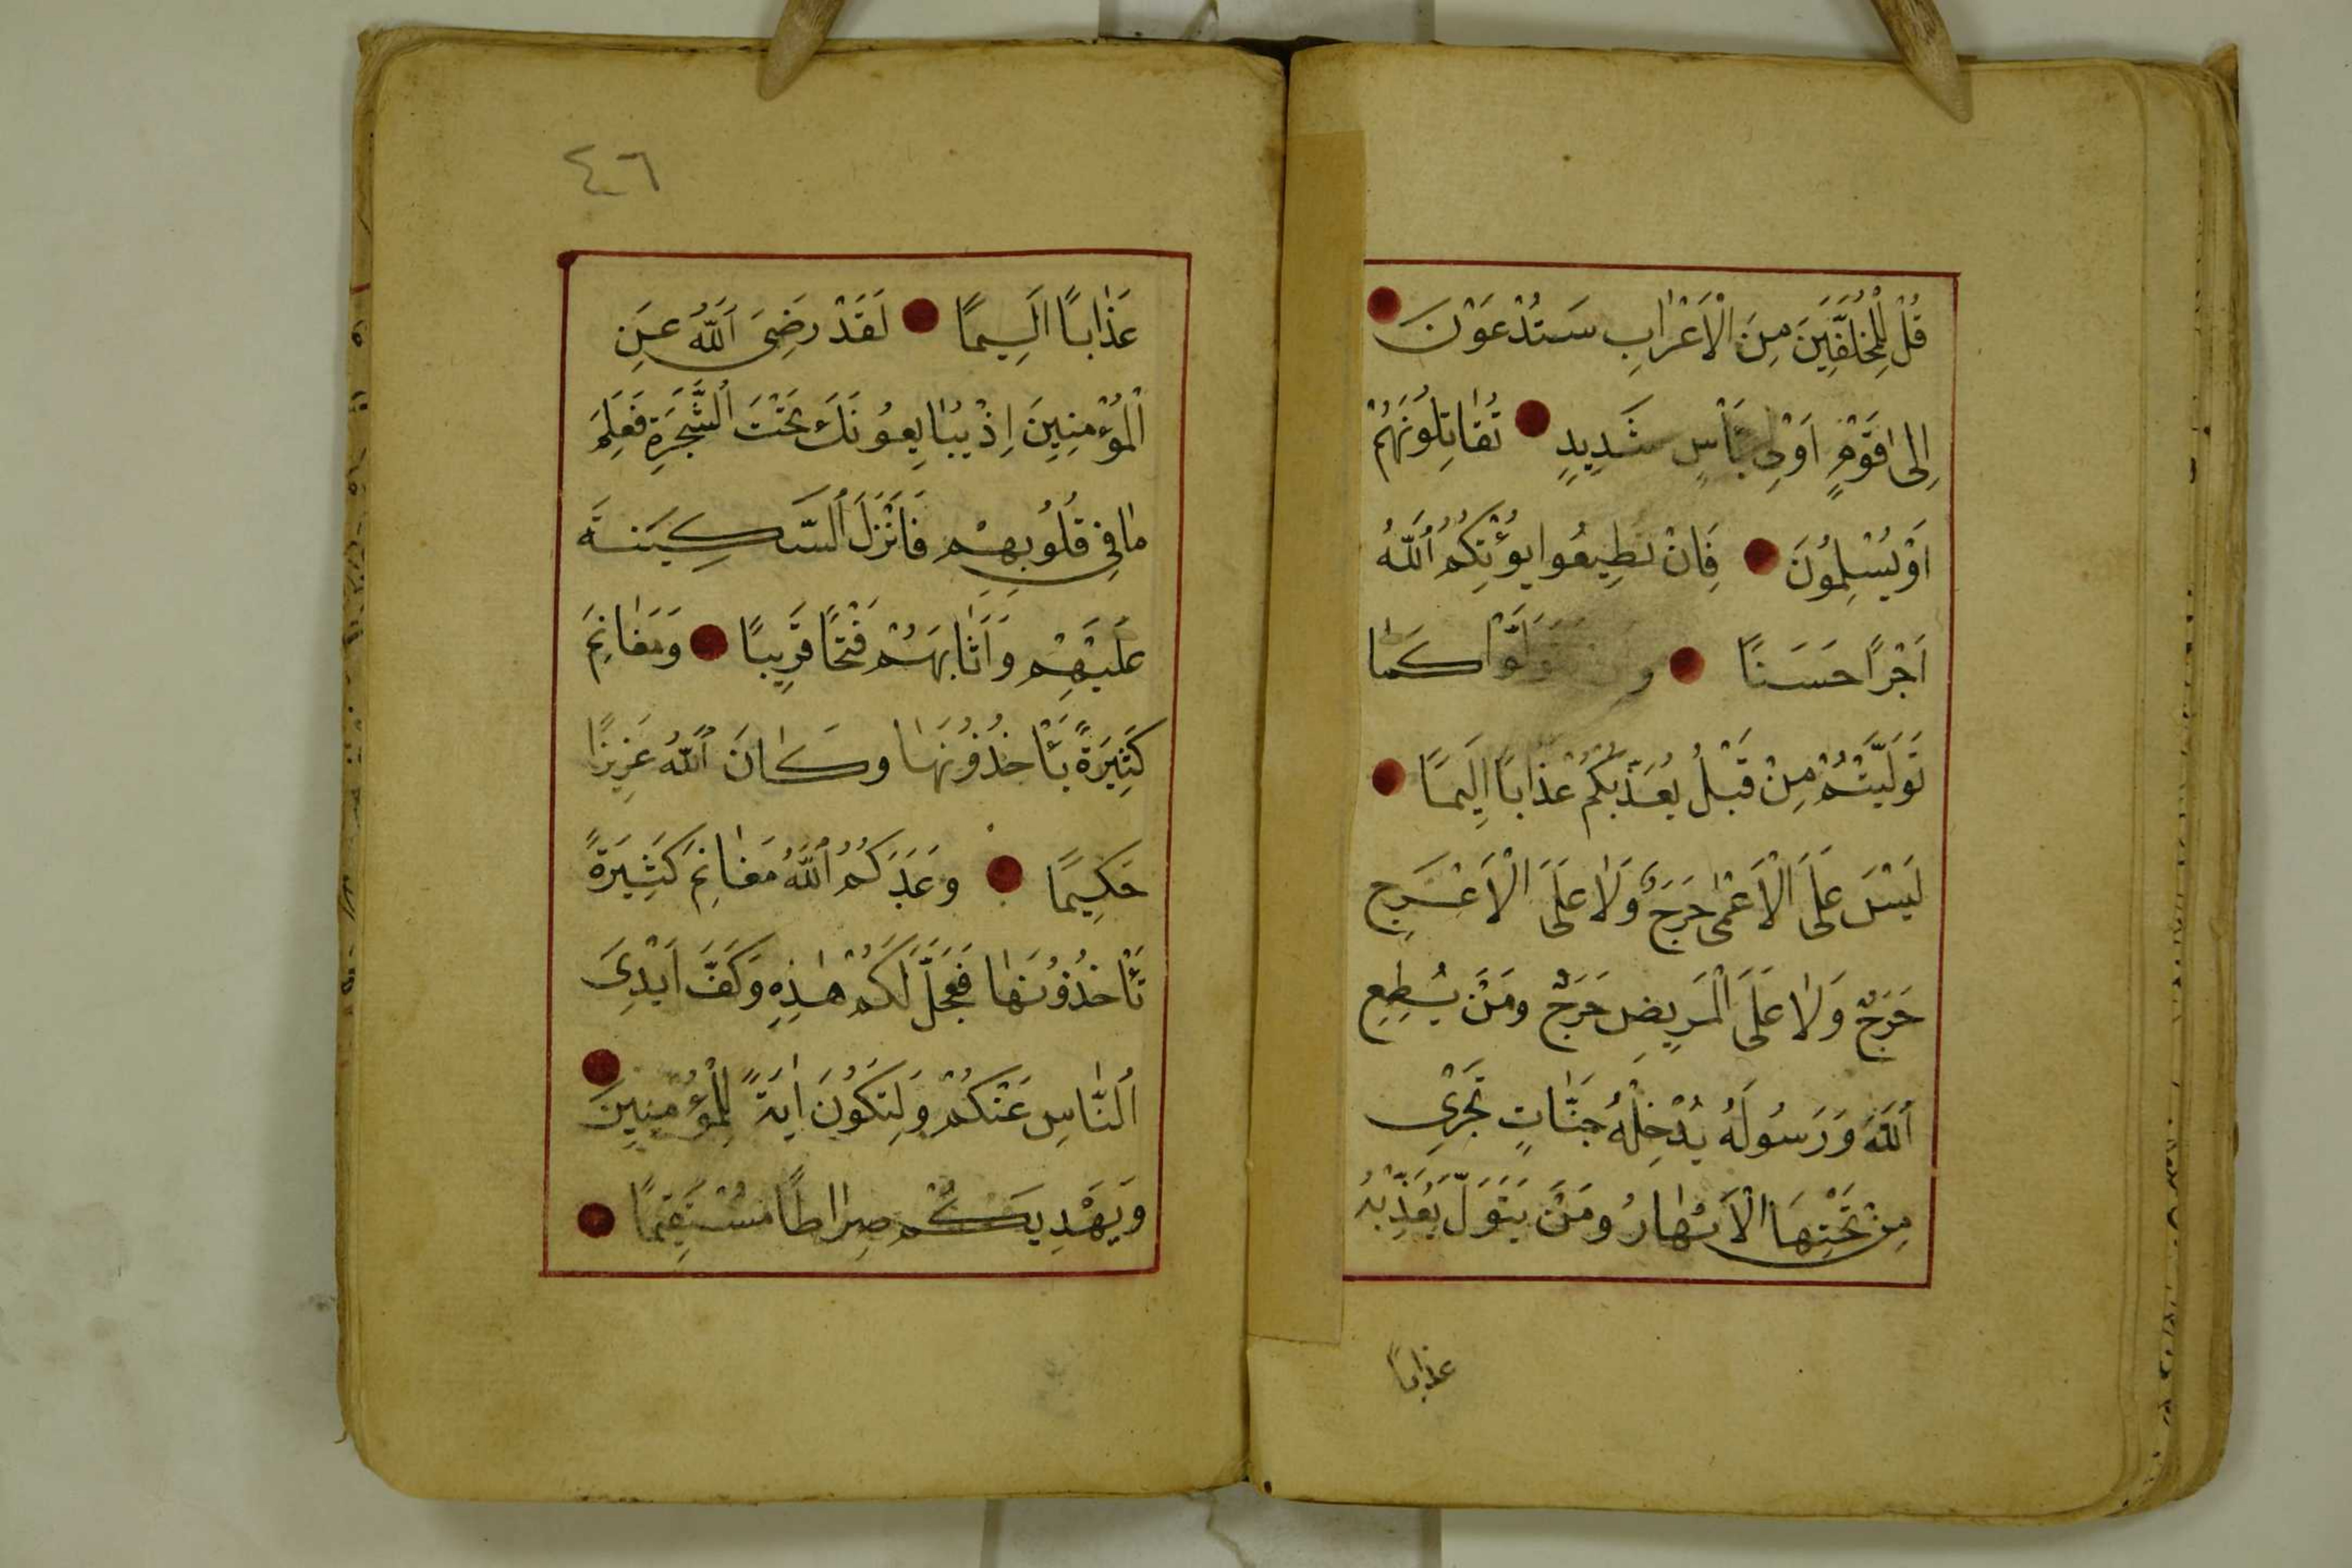 قُلْ لِلْمُخَلَّفِينَ مِنَ الْاَعْرٰابِ سَتُدْعَوْنَ
اِلٰى قَوْمٍ اُوْلِى بَأْسٍ شَدِيدٍ تُقٰاتِلُونَهُمْ
اَوْ يُسْلِمُونَ فَاِنْ تُطِيعُوا يُؤْتِكُمُ اللّٰهُ
اَجْرًا حَسَنًا تَوَلَّوْا كَمٰا
تَوَلَّيْتُمْ مِنْ قَبْلُ يُعَذِّبْكُمْ عَذٰابًا اَلِيمًا
لَيْسَ عَلَى الْاَعْمٰى حَرَجٌ وَلٰا عَلَى الْاَعْرَجِ
حَرَجٌ وَلٰا عَلَى الْمَرِيضِ حَرَجٌ وَمَنْ يُطِعِ
اللّٰهَ وَرَسُولَهُ يُدْخِلْهُ جَنّٰاتٍ تَجْرِى
مِنْ تَحْتِهَا الْاَنْهٰارُ وَمَنْ يَتَوَلَّ يُعَذِّبْهُ
عذابًا
٤٦
عَذٰابًا اَلِيمًا لَقَدْ رَضِىَ اللّٰهُ عَنِ
الْمُؤْمِنِينَ اِذْ يُبٰايِعُونَكَ تَحْتَ الشَّجَرَةِ فَعَلِمَ
مٰا فِى قُلُوبِهِمْ فَاَنْزَلَ السَّكِينَةَ
عَلَيْهِمْ وَاَثٰابَهُمْ فَتْحًا قَرِيبًا وَمَغٰانِمَ
كَثِيرَةً يَأْخُذُونَهٰا وَكٰانَ اللّٰهُ عَزِيزًا
حَكِيمًا وَعَدَكُمُ اللّٰهُ مَغٰانِمَ كَثِيرَةً
تَأْخُذُونَهٰا فَعَجَّلَ لَكُمْ هٰذِهِ وَكَفَّ اَيْدِىَ
النّٰاسِ عَنْكُمْ وَلِتَكُونَ اٰيَةً لِلْمُؤْمِنِينَ
وَيَهْدِيَكُمْ صِرٰاطًا مُسْتَقِيمًا